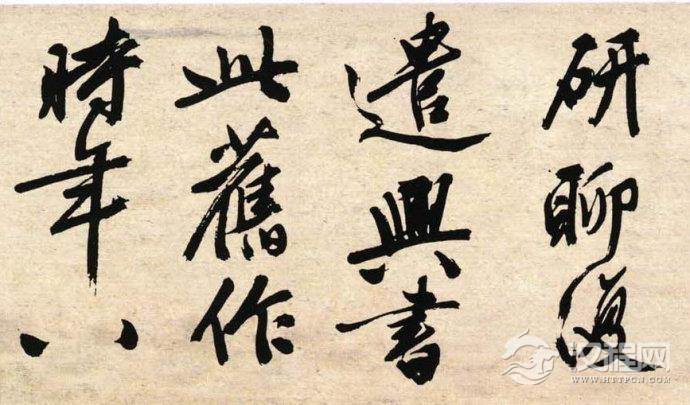 研聊復
遣興書
此舊作
時年八
汉程网
WWW.HTTPCN.COM